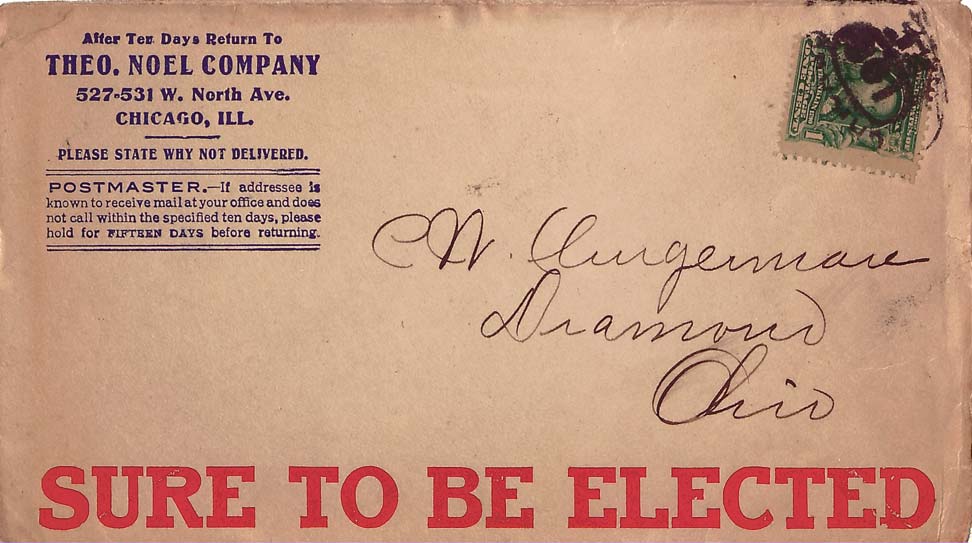 After Ten Days Return To
THEO. NOEL COMPANY
527-531 W. North Ave.
CHICAGO, ILL.
PLEASE STATE WHY NOT DELIVERED.
POSTMASTER.—If addressee is
known to receive mail at your office and does
not call within the specified ten days, please
hold for FIFTEEN DAYS before returning.
Diamond
Ohio
SURE TO BE ELECTED